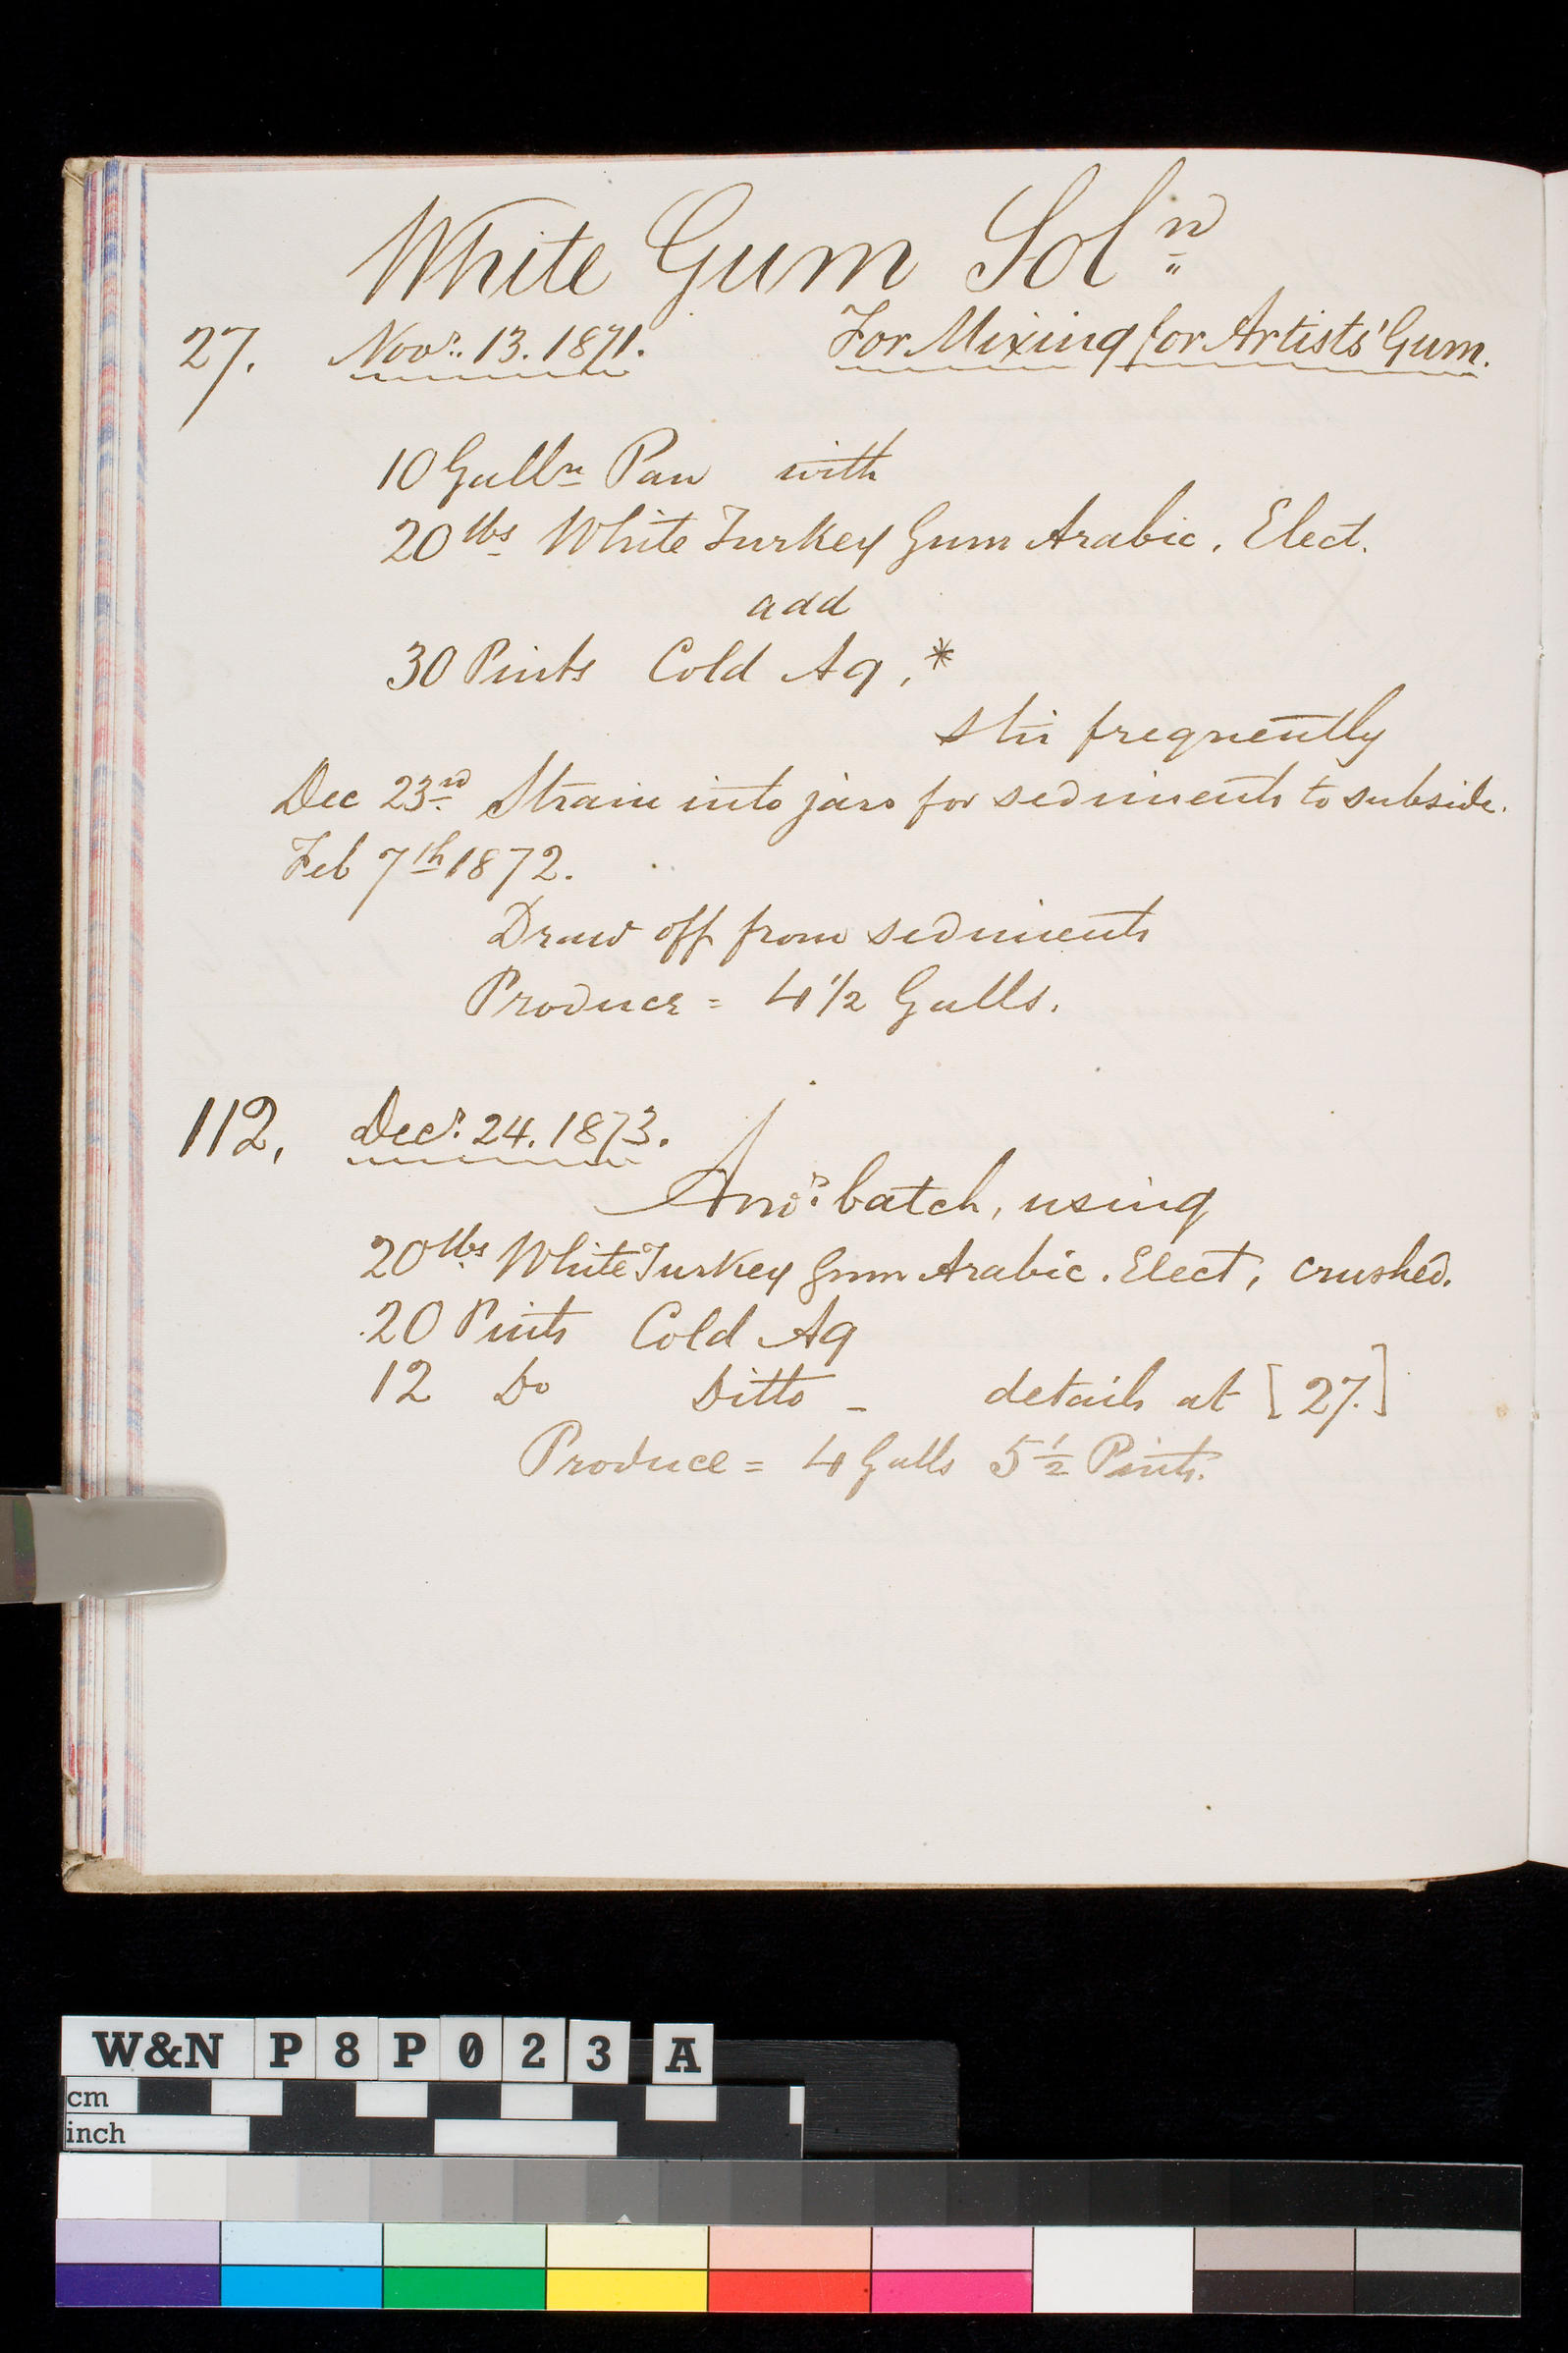 White Gum Solⁿ
27. Novʳ. 13. 1871. For Mixing for Artists' Gum.
10 Gallⁿ Pan with
20 lbs White Turkey Gum Arabic. Elect.
add
30 Pints Cold Aq.*
stir frequently
Dec 23ʳᵈ Strain into jars for sediments to subside.
Feb 7th 1872.
Draw off from sediments
Produce = 4 1/2 Galls.
112. Decʳ. 24. 1873.
Anoʳ. batch, using
20 lbs White Turkey Gum Arabic. Elect, crushed.
20 Pints Cold Aq
12 Do Ditto - details at [27.]
Produce = 4 Galls 5 1/2 Pints.
W&N P8P023 A
cm
inch